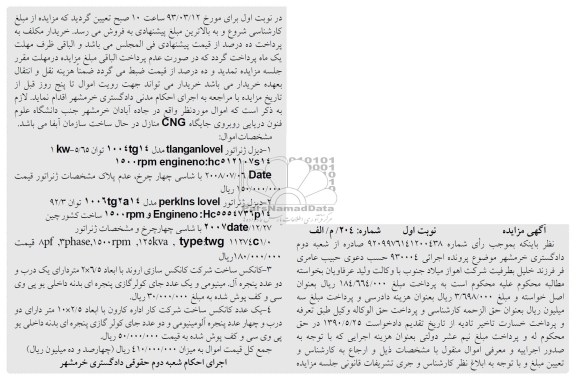 آگهی مزایده نوبت اول شماره: ۲۰۴/ م/ الف
نظر باینکه بموجب رأی شماره ۹۲۰۹۹۷۶۱۴۱۲۰۰۴۳۸ صادره از شعبه دوم
دادگستری خرمشهر موضوع پرونده اجرائی ۹۳۰۰۰۴ حسب دعوی حبیب عامری
فر فرزند خلیل بطرفیت شرکت اهواز میلاد جنوب با وکالت ولید عرفاویان بخواسته
مطالبه محکوم علیه محکوم است به پرداخت مبلغ ۱۸۴/۶۶۴/۰۰۰ ریال بعنوان
اصل خواسته و مبلغ ۳/۶۹۸/۰۰۰ ریال بعنوان هزینه دادرسی و پرداخت مبلغ سه
میلیون ریال بعنوان حق الزحمه کارشناسی و پرداخت حق الوکاله وکیل طبق تعرفه
و پرداخت خسارت تاخیر تادیه از تاریخ تقدیم دادخواست ۱۳۹۰/۵/۲۵ در حق
محکوم له و پرداخت مبلغ نیم عشر دولتی بعنوان هزینه اجرایی که با توجه به
صدور اجراییه و معرفی اموال منقول با مشخصات ذیل و ارجاع به کارشناس و
تعیین مبلغ و با توجه به ابلاغ نظر کارشناس و جری تشریفات قانونی جلسه مزایده
در نوبت اول برای مورخ ۹۳/۰۳/۱۲ ساعت ۱۰ صبح تعیین گردید که مزایده از مبلغ
کارشناسی شروع و به بالاترین مبلغ پیشنهادی به فروش می رسد. خریدار مکلف به
پرداخت ده درصد از قیمت پیشنهادی فی المجلس می باشد و الباقی ظرف مهلت
یک ماه پرداخت گردد که در صورت عدم پرداخت الباقی مبلغ مزایده درمهلت مقرر
جلسه مزایده تمدید و ده درصد از قیمت ضبط می گردد ضمناً هزینه نقل و انتقال
بعهده خریدار می باشد خریدار می تواند جهت رویت اموال تا پنج روز قبل از
تاریخ مزایده با مراجعه به اجرای احکام مدنی دادگستری خرمشهر اقدام نماید. لازم
به ذکر است که اموال موردنظر واقع در جاده آبادان خرمشهر جنب دانشگاه علوم
فنون دریایی روبروی جایگاه CNG منازل در حال ساخت سازمان آبفا می باشد.
مشخصات اموال:
۱-دیزل ژنراتور tlanganlovel مدل ۱۰۰۴tg۱۴ توان ۵/۶۵-kw ۱
۱۵۰۰rpm engineno:hc۵۱۲۱۰۷s۱۴
Date ۲۰۰۸/۰۷/۰۶ با شاسی چهار چرخ، عدم پلاک مشخصات ژنراتور قیمت
۱۵۰/۰۰۰/۰۰۰ ریال
۲-دیزل ژنراتور perkins lovel مدل ۱۰۰۶tg۲a۱۴ توان ۹۲/۳
Engineno : Hc۵۵۵۴۷۳۶p۱۴ و ۱۵۰۰rpm ساخت کشور چین
۲۰۰۷date/۱۲/۲۷ با شاسی چهارچرخ و مشخصات ژنراتور
۱۱۲۷/۴C۱/۰ type:twg ، ۱۲۵kva ,۳phase,۱۵۰۰rpm ,۸pf قیمت
۱۸۰/۰۰۰/۰۰۰ریال
۳-کانکس ساخت شرکت کانکس سازی اروند با ابعاد ۲×۶/۵ متردارای یک درب و
دو عدد پنجره آل. مینومی و یک عدد جای کولرگازی پنجره ای بدنه داخلی یو پی وی
سی و کف پوش شده به مبلغ ۳۰/۰۰۰/۰۰۰ ریال.
۴-یک عدد کانکس ساخت شرکت کار اداره کارون با ابعاد ۲/۵×۱۰ متر دارای دو
درب و چهار عدد پنجره آلومینومی و دو عدد جای کولر گازی پنجره ای بدنه داخلی یو
پی وی سی و کف پوش شده به قیمت ۵۰/۰۰۰/۰۰۰ ریال.
جمع کل قیمت اموال به میزان ۴۱۰/۰۰۰/۰۰۰ ریال (چهارصد و ده میلیون ریال)
اجرای احکام شعبه دوم حقوقی دادگستری خرمشهر
ParsNamadData